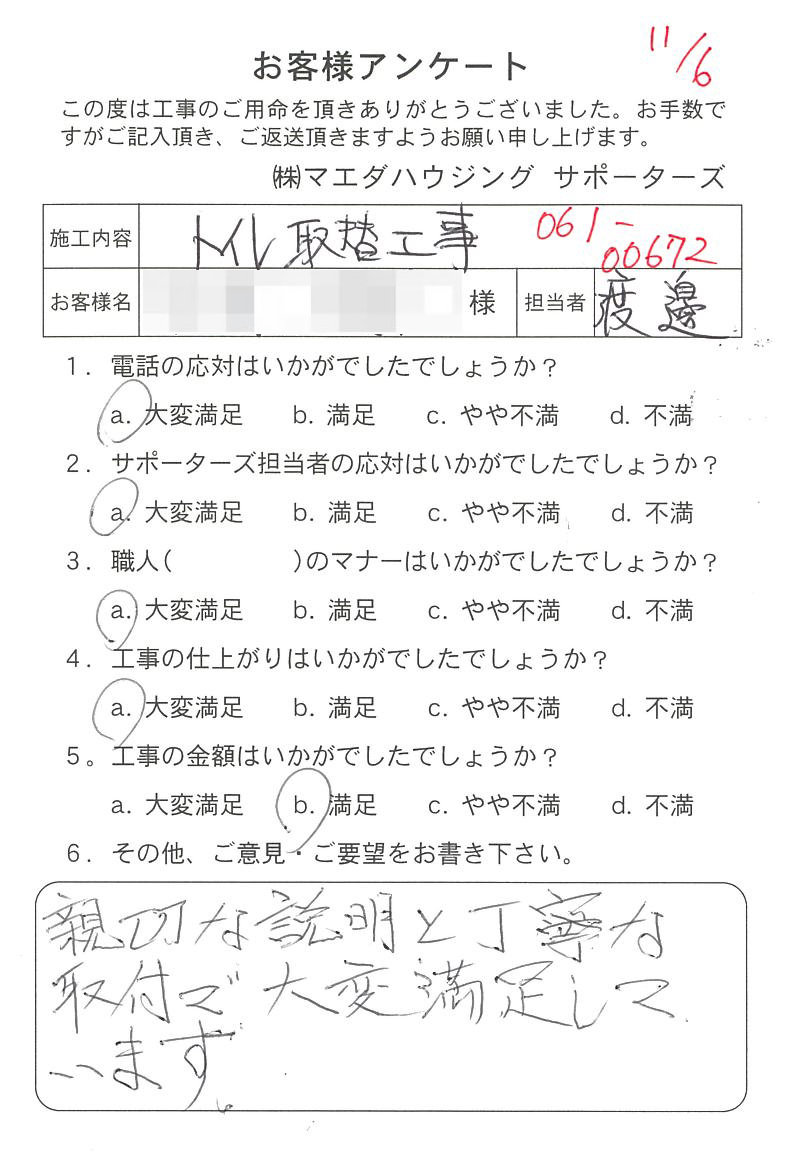 11/6
お客様アンケート
この度は工事のご用命を頂きありがとうございました。お手数で
すがご記入頂き、ご返送頂きますようお願い申し上げます。
㈱マエダハウジング サポーターズ
施工内容 トイレ取替工事 061-
00672
お客様名 様 担当者 渡邊
1. 電話の応対はいかがでしたでしょうか？
a. 大変満足 b. 満足 c. やや不満 d. 不満
2. サポーターズ担当者の応対はいかがでしたでしょうか？
a. 大変満足 b. 満足 c. やや不満 d. 不満
3. 職人( )のマナーはいかがでしたでしょうか？
a. 大変満足 b. 満足 c. やや不満 d. 不満
4. 工事の仕上がりはいかがでしたでしょうか？
a. 大変満足 b. 満足 c. やや不満 d. 不満
5。工事の金額はいかがでしたでしょうか？
a. 大変満足 b. 満足 c. やや不満 d. 不満
6. その他、ご意見・ご要望をお書き下さい。
親切な説明と丁寧な
取付で大変満足して
います。